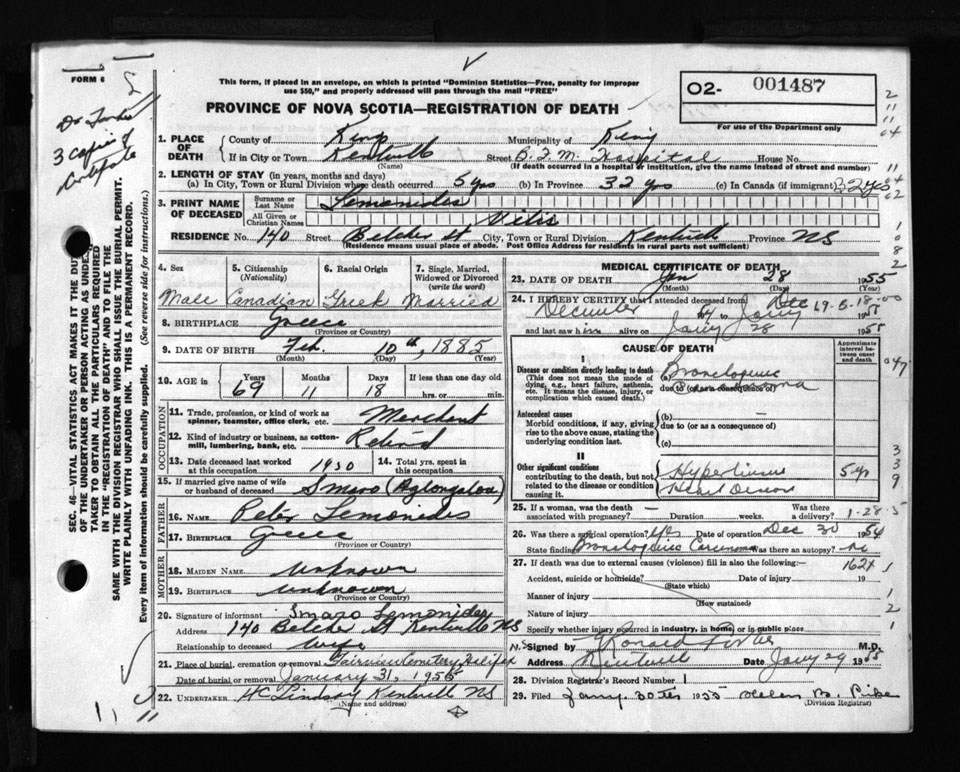 FORM 6
Dr Forbes
3 copies of
This form, if placed in an envelope, on which is printed "Dominion Statistics—Free, penalty for improper
use $50," and properly addressed will pass through the mail "FREE"
PROVINCE OF NOVA SCOTIA—REGISTRATION OF DEATH
O2- 001487
For use of the Department only
1. PLACE OF DEATH { County of Kings Municipality of Kings
If in City or Town Kentville Street B.F.M. Hospital House No.
(Name) (If death occurred in a hospital or institution, give the name instead of street and number)
2. LENGTH OF STAY (in years, months and days)
(a) In City, Town or Rural Division where death occurred 5 yrs (b) In Province 32 yrs (c) In Canada (if immigrant) 32 yrs
3. PRINT NAME OF DECEASED { Surname or Last Name Lemonides
All Given or Christian Names
RESIDENCE No. 140 Street Belcher St City, Town or Rural Division Kentville Province NS
(Residence means usual place of abode. Post Office Address for residents in rural parts not sufficient)
4. Sex 5. Citizenship (Nationality) 6. Racial Origin 7. Single, Married, Widowed or Divorced (write the word)
Male Canadian Greek Married
8. BIRTHPLACE Greece
(Province or Country)
9. DATE OF BIRTH Feb. 10th, 1885
(Month) (Day) (Year)
10. AGE in { Years Months Days If less than one day
69 11 18 hrs. or min.
OCCUPATION
11. Trade, profession, or kind of work as spinner, teamster, office clerk, etc. Merchant
12. Kind of industry or business, as cotton-mill, lumbering, bank, etc. Retired
13. Date deceased last worked at this occupation 1950
14. Total yrs. spent in this occupation
15. If married give name of wife or husband of deceased Smaro (
FATHER
16. NAME Peter Lemonides
17. BIRTHPLACE Greece
(Province or Country)
MOTHER
18. MAIDEN NAME Unknown
19. BIRTHPLACE unknown
(Province or Country)
20. Signature of informant Smaro Lemonides
Address 140 Belcher St Kentville NS
Relationship to deceased wife
21. Place of burial, cremation or removal Fairview Cemetery Halifax
Date of burial or removal January 31, 1955
22. UNDERTAKER HC Lindsay Kentville NS
(Name and address)
MEDICAL CERTIFICATE OF DEATH
23. DATE OF DEATH Jan 28 1955
(Month) (Day) (Year)
24. I HEREBY CERTIFY that I attended deceased from Dec
December 54 to Jany 1955
and last saw him alive on Jany 28 1955
CAUSE OF DEATH
Approximate interval between onset and death
I
Disease or condition directly leading to death
(This does not mean the mode of dying, e.g., heart failure, asthenia, etc. It means the disease, injury, or complication which caused death.)
(a) Bronchogenic
due to (or as a consequence of)
Antecedent causes
Morbid conditions, if any, giving rise to the above cause, stating the underlying condition last.
(b) —
due to (or as a consequence of)
(c)
II
Other significant conditions contributing to the death, but not related to the disease or condition causing it.
Hypertensive 5 yr
Heart Disease
25. If a woman, was the death associated with pregnancy? — Duration weeks. Was there a delivery? 1-28-5
26. Was there a surgical operation? Yes Date of operation Dec 30 1954
State findings Bronchogenic Carcinoma Was there an autopsy? no
27. If death was due to external causes (violence) fill in also the following:— 162X
Accident, suicide or homicide? Date of injury 19
(State which)
Manner of injury
(How sustained)
Nature of injury
Specify whether injury occurred in industry, in home, or in public place
Signed by M.D.
Address Kentville N.S. Date Jany 29 1955
28. Division Registrar's Record Number 1
29. Filed Jany. 30th 1955 Helen M.
(Division Registrar)
SEC. 46—VITAL STATISTICS ACT MAKES IT THE DUTY
OF THE UNDERTAKER OR PERSON ACTING AS UNDERTAKER
TO OBTAIN ALL THE PARTICULARS REQUIRED
IN THE "REGISTRATION OF DEATH" AND TO FILE THE
SAME WITH THE DIVISION REGISTRAR WHO SHALL ISSUE THE BURIAL PERMIT.
WRITE PLAINLY WITH UNFADING INK. THIS IS A PERMANENT RECORD.
Every item of information should be carefully supplied. (See reverse side for instructions.)